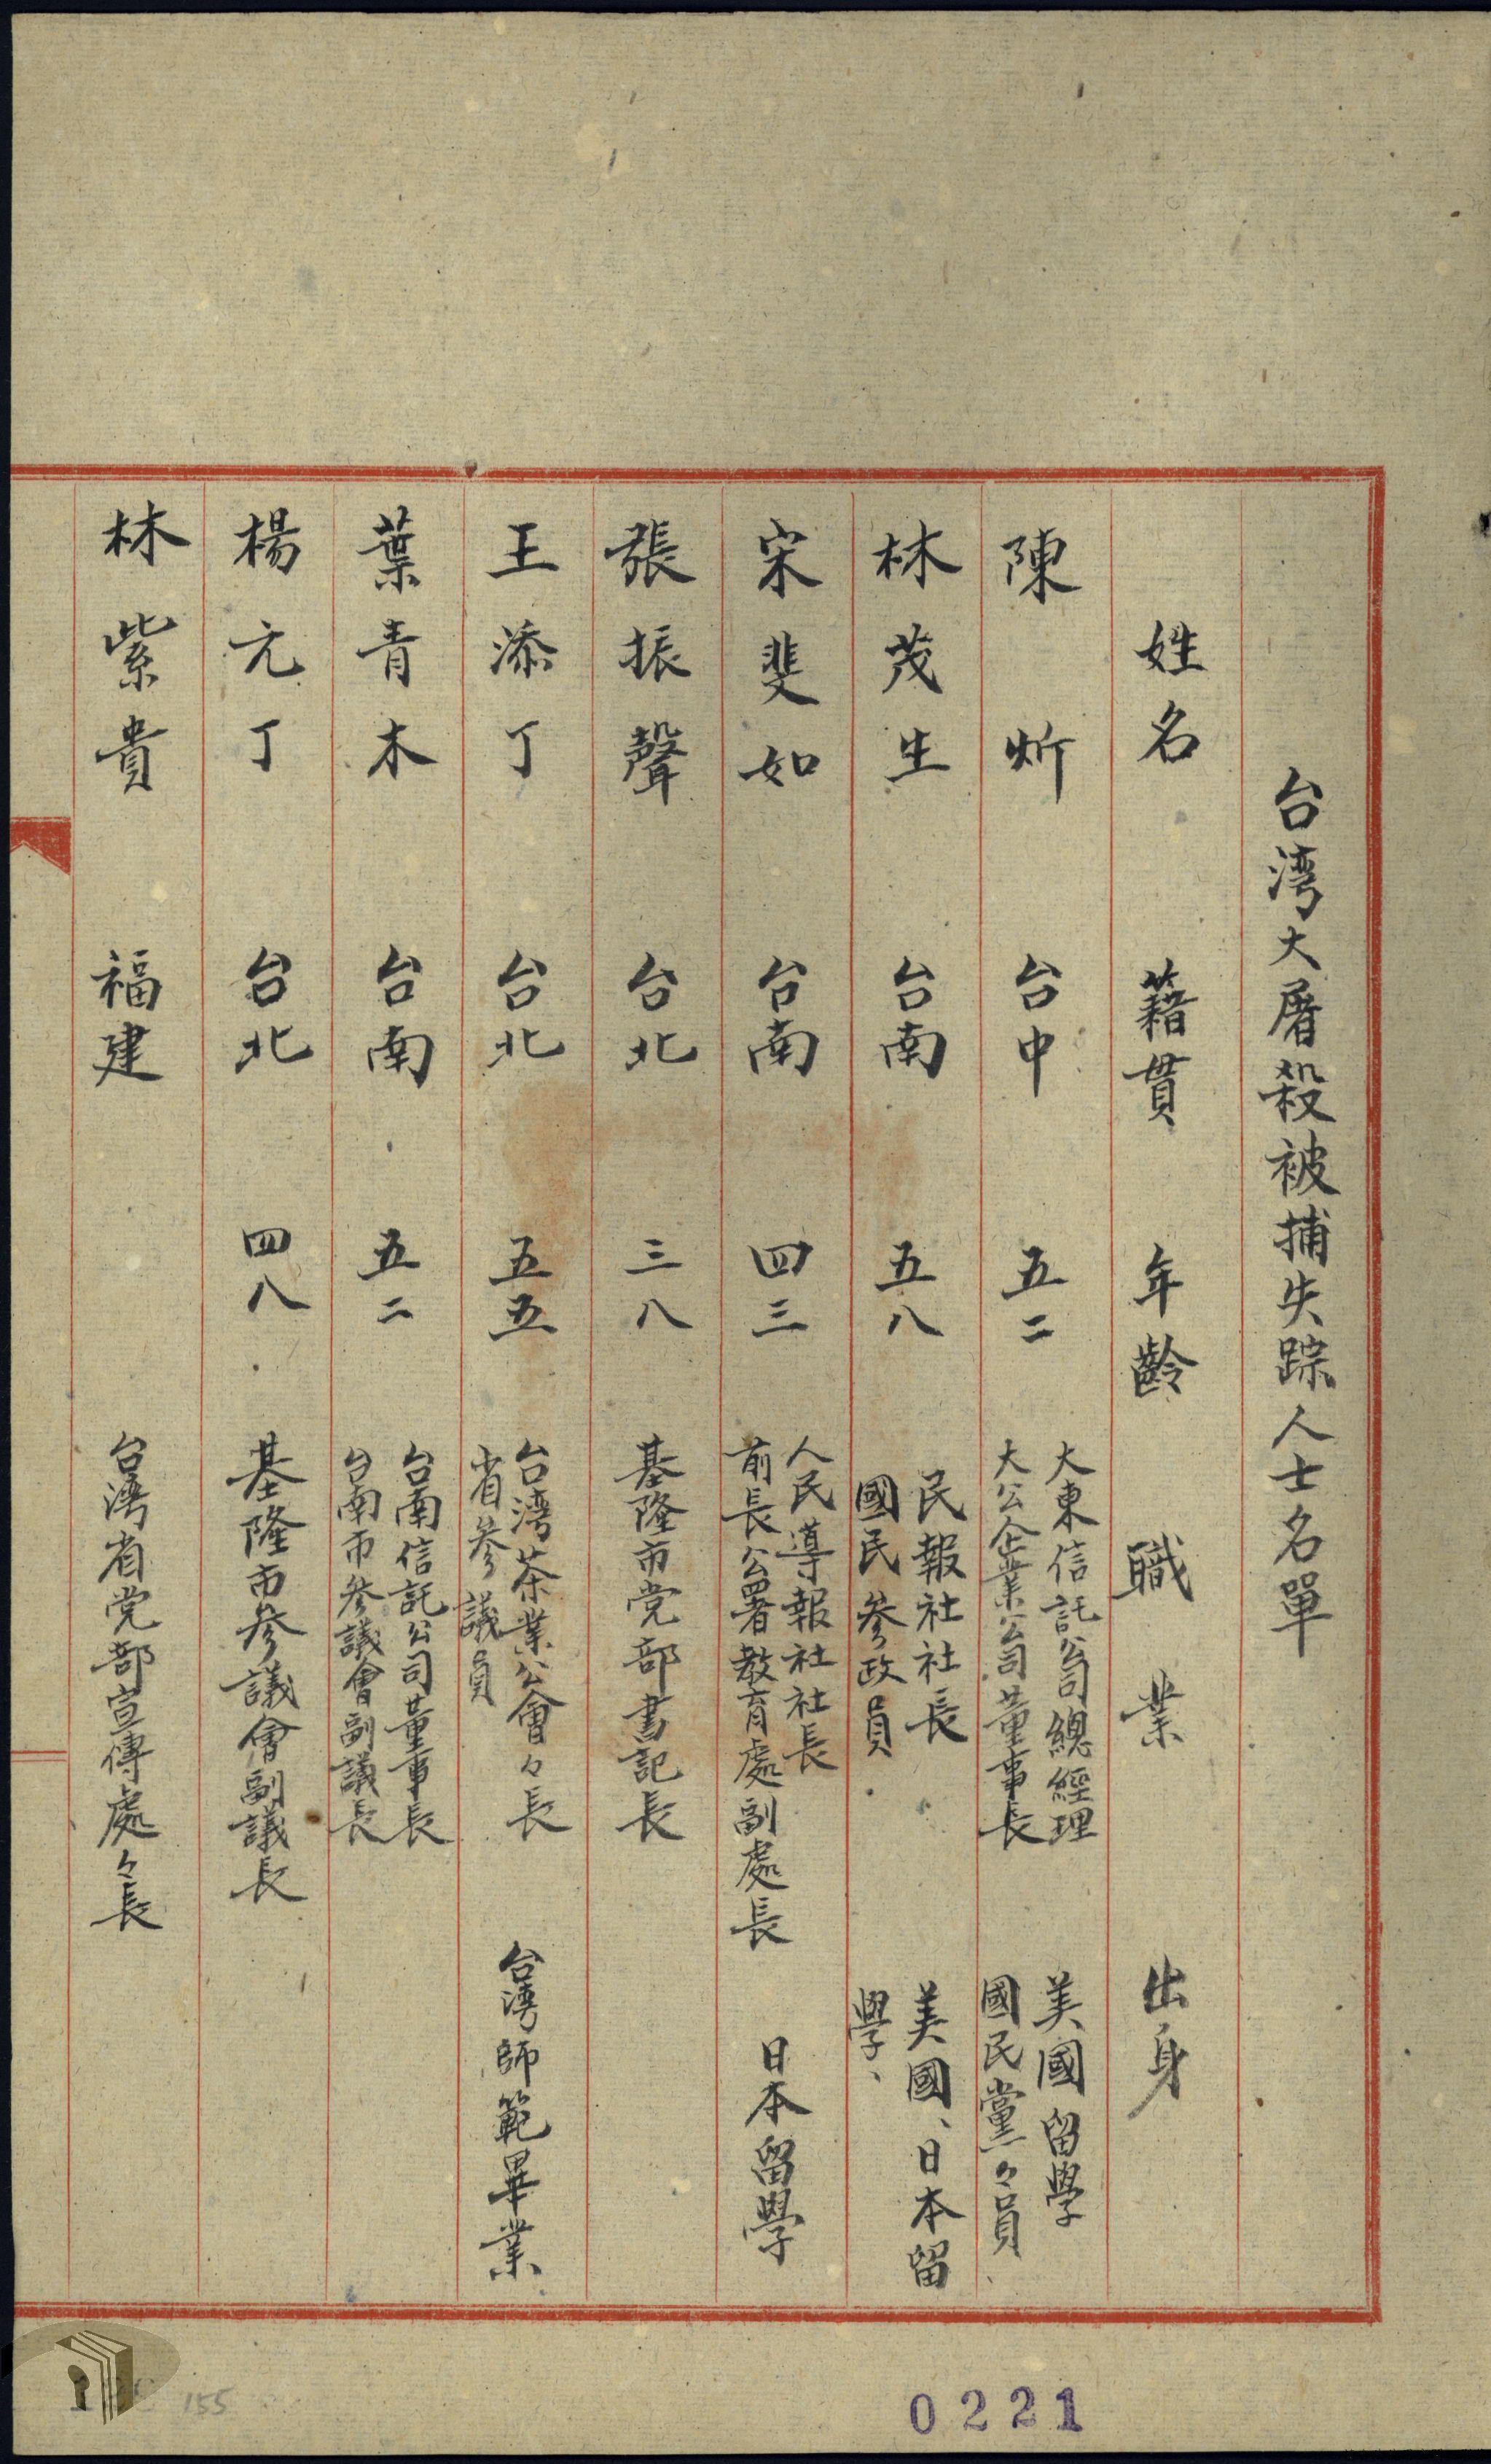 台湾大屠殺被捕失踪人士名單
姓名 籍貫 年齡 職業 出身
陳炘 台中 五二 大東信託公司總經理 美國留學
大公企業公司董事長 國民黨々員
林茂生 台南 五八 民報社社長 美國、日本留
國民參政員 學、
宋斐如 台南 四三 人民導報社社長 日本留學
前長公署教育處副處長
張振聲 台北 三八 基隆市党部書記長
王添丁 台北 五五 台湾茶業公會々長 台湾師範畢業
省參議員
葉青木 台南 五二 台南信託公司董事長
台南市參議會副議長
楊元丁 台北 四八 基隆市參議會副議長
林紫貴 福建 台湾省党部宣傳處々長
155
0221